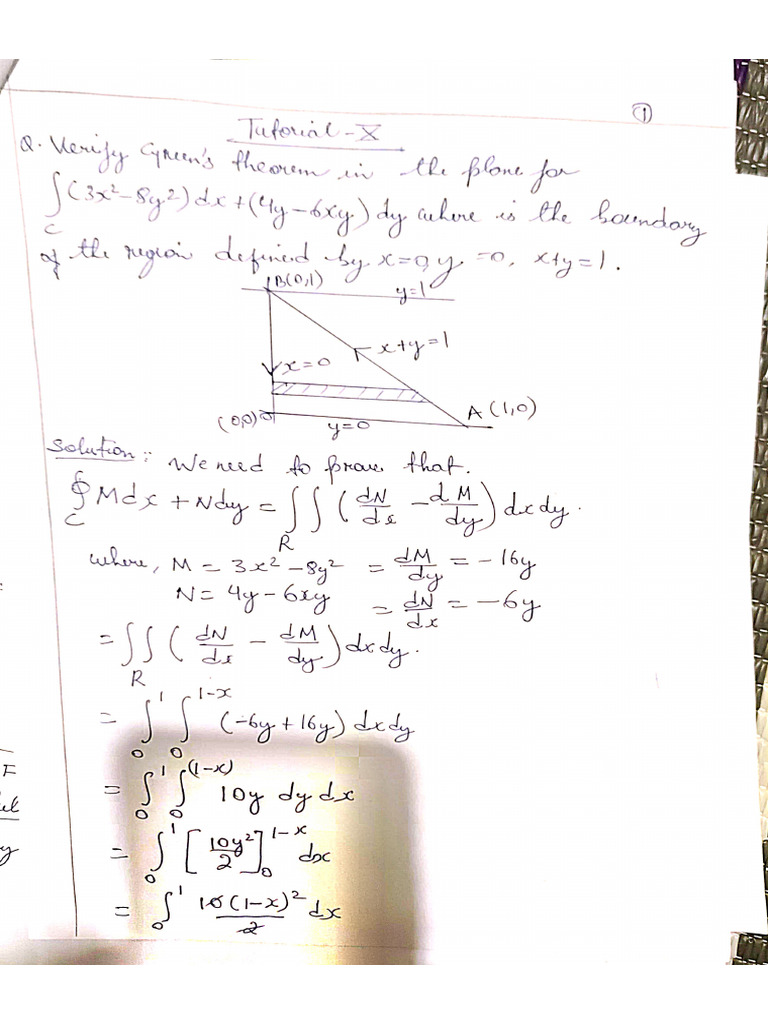 ①
Tutorial-X
Q. Verify Green's theorem in the plane for
∫_C (3x²-8y²)dx+(4y-6xy)dy where is the boundary
of the region defined by x=0, y=0, x+y=1.
B(0,1)
y=1
x+y=1
x=0
A(1,0)
(0,0) 0
y=0
Solution:: We need to prove that.
∮_C Mdx + Ndy = ∫∫_R (dN/dx - dM/dy) dxdy.
where, M = 3x²-8y² = dM/dy = -16y
N = 4y-6xy = dN/dx = -6y
= ∫∫_R (dN/dx - dM/dy) dxdy.
= ∫_0^1 ∫_0^{1-x} (-6y+16y) dxdy
= ∫_0^1 ∫_0^{(1-x)} 10y dy dx
= ∫_0^1 [10y²/2]_0^{1-x} dx
= ∫_0^1 10(1-x)²/2 dx
F
y